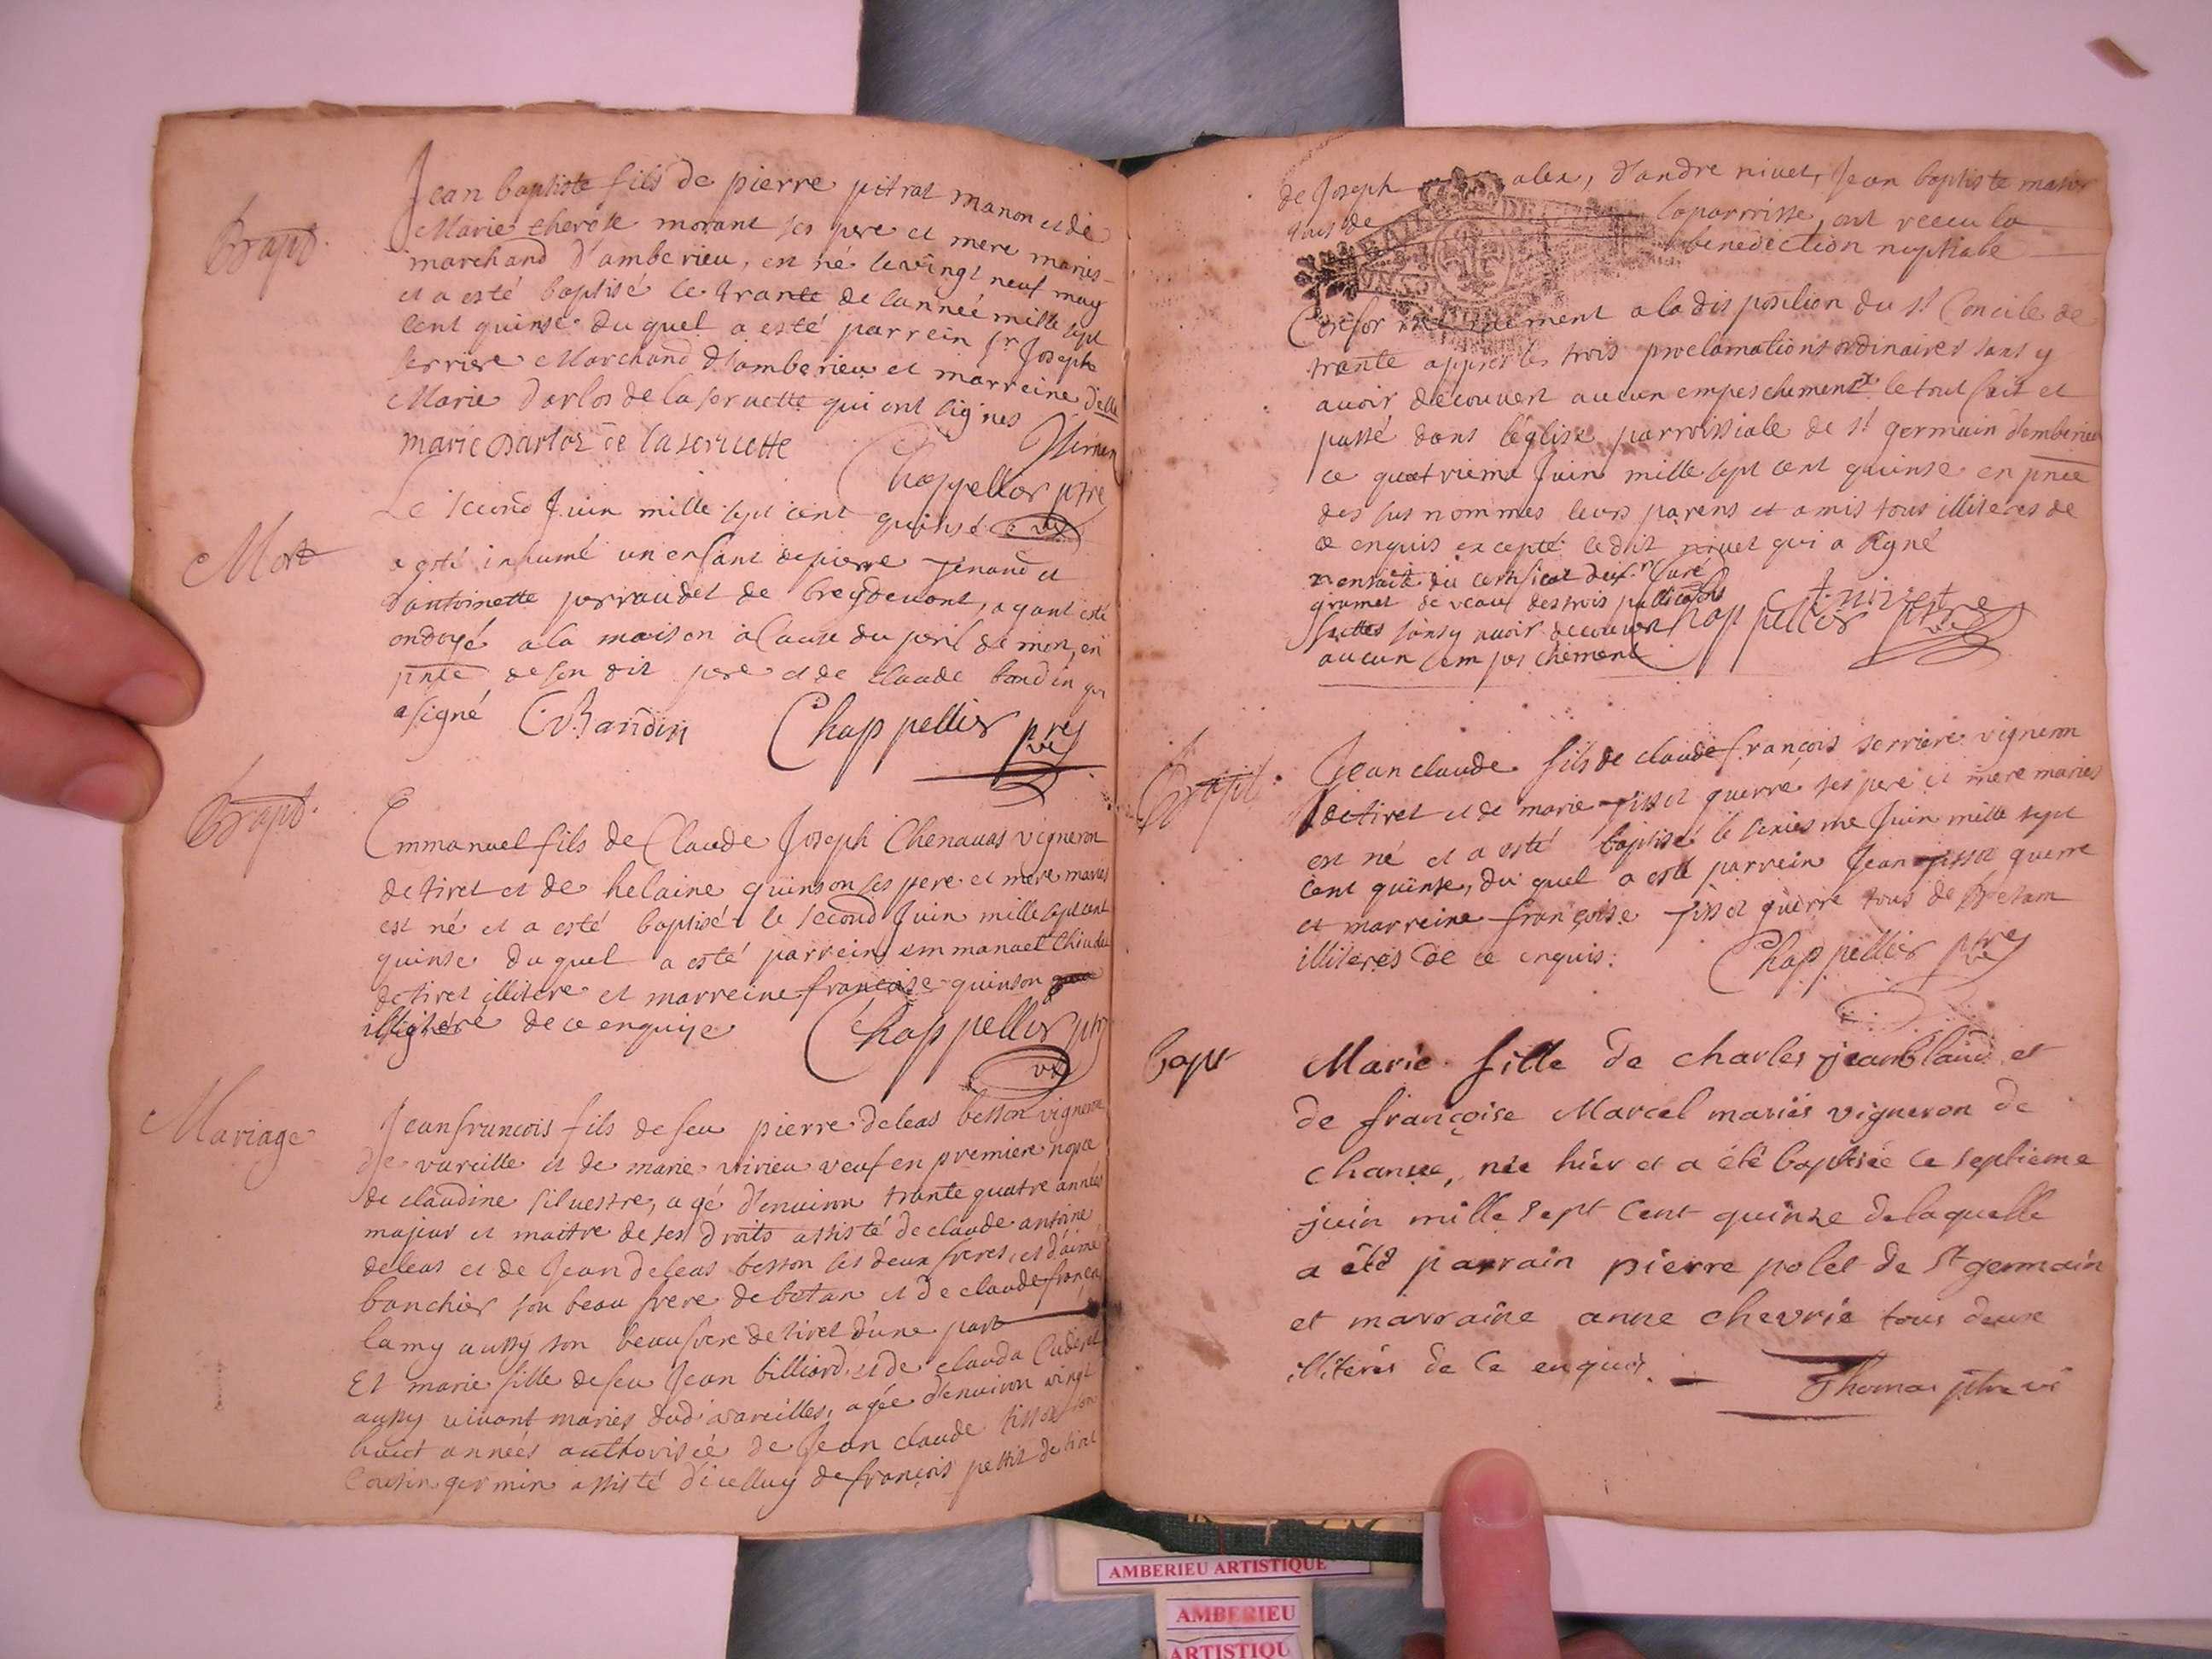 Bapt.
Jean baptiste fils de pierre pitrat manon et de
Marie therese morant ses pere et mere maries
marchand d'amberieu, est né le vingt neuf may
et a esté baptisé le trante de lannée mille sept
cent quinse du quel a esté parrein sr Joseph
serriere Marchand d'amberieu et marreine delle
Marie darlos de la seruette qui ont signes
marie Darloz de laseruette
Chappellier ptre
vic
Mort
Le second Juin mille sept cent quinse
a esté inhumé un enfant de pierre et
d'antoinette perraudet de breydeuont, ayant esté
ondoyé a la maison a cause du peril de mort, en
pnce de son dit pere et de claude bandin qui
a signé C Bandin Chappellier ptre
vic
Bapt.
Emmanuel fils de Claude Joseph Chenauas vigneron
de tiret et de helaine quinson ses pere et mere maries
est né et a esté baptisé le second Juin mille sept cent
quinse du quel a esté parrein emmanuel
de tiret illitere et marreine françoise quinson
illitéré de ce enquise Chappellier ptre
vic
Mariage
Jean francois fils de feu pierre deleas besson vigneron
de vareille et de marie virieu veuf en premiere nopce
de claudine siluestre, agé d'enuiron trante quatre années
majeur et maitre de ses droits assisté de claude antoine
deleas et de Jean deleas besson ses deux freres, et d'aimé
banchier son beau frere de betan et de claude françois
lamy aussy son beaufrere de tiret d'une part
Et marie fille de feu Jean billiard et de clauda
aussy viuant maries dud vareilles, agée d'enuiron vingt
huict années authorisée de Jean claude tissot son
Cousin germin assisté d'icelluy de françois pettit de tiret
de Joseph alex, d'andre niuet, Jean baptiste
tous de laparroisse, ont receu la
benediction nuptiale
Conformement a la disposition du st Concile de
trante appres les trois proclamations ordinaires sans y
auoir decouuert aucun empeschement x le tout fait et
passé dans l'église parroissiale de st germain d'emberieu
ce quatrieme Juin mille sept cent quinse en pnce
des sus nommés leurs parens et amis tous illiteres de
ce enquis excepté ledit niuet qui a signé
x ensuitte du certificat du sr Curé
de vaux des trois publications
faittes sans y auoir decouuert
aucun empeschement
A niuet
Chappellier ptre
vic
Bapt.
Jean claude fils de claude françois serriere vigneron
de tiret et de marie tissot guerre ses pere et mere maries
est né et a esté baptisé le sixiesme Juin mille sept
cent quinse, du quel a esté parrein Jean tissot guerre
et marreine françoise tissot guerre tous de Betam
illiteres de ce enquis. Chappellier ptre
vic
bapt
Marie fille de charles jeanblanc et
de françoise Marcel mariés vigneron de
chanue, née hier et a été baptisée ce septieme
juin mille sept cent quinze de laquelle
a été parrain pierre polet de St germain
et marraine anne chevrie tous deux
illiterés de ce enquis.
Thomas ptre vi
AMBERIEU ARTISTIQUE
AMBERIEU
ARTISTIQU